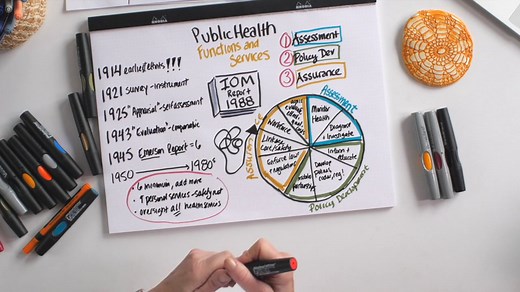 Public Health
Functions and
Services
① Assessment
② Policy Dev
③ Assurance
1914 earliest efforts !!!
1921 survey - instrument
1925 "Appraisal" - self assessment
1943 "Evaluation" - comparable
1945 Emerson Report = 6
1950 → 1980s
• 6 minimum, add more
• ↑ personal services - safety net
• oversight all health services
IOM
Report
1988
ASSESSMENT
Monitor
Health
Diagnose +
Investigate
Inform +
Educate
Develop
policies
Enforce laws
+ regulations
Link to
care/safety
Workforce
Policy Development